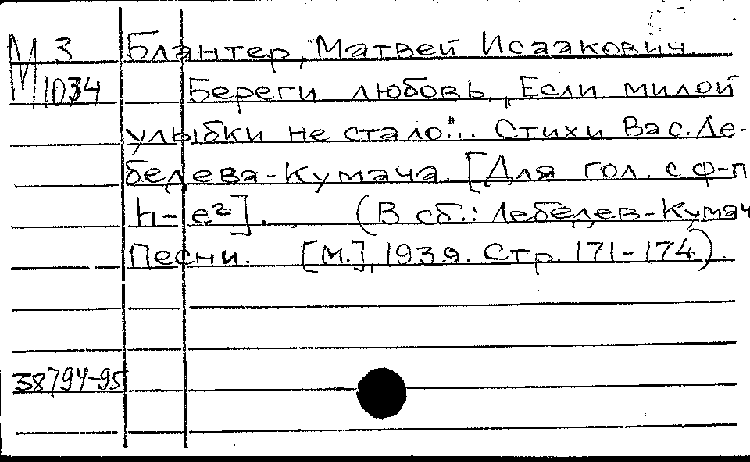 М 3 Блантер, Матвей Исаакович.
М 1034 Береги любовь. „Если милой
улыбки не стало“.. Стихи Вас. Ле-
бедева-Кумача. [Для гол. с ф-п
h-e²]. (В сб.: Лебедев-Кумач
Песни. [М.], 1939. Стр. 171-174).
38794-95